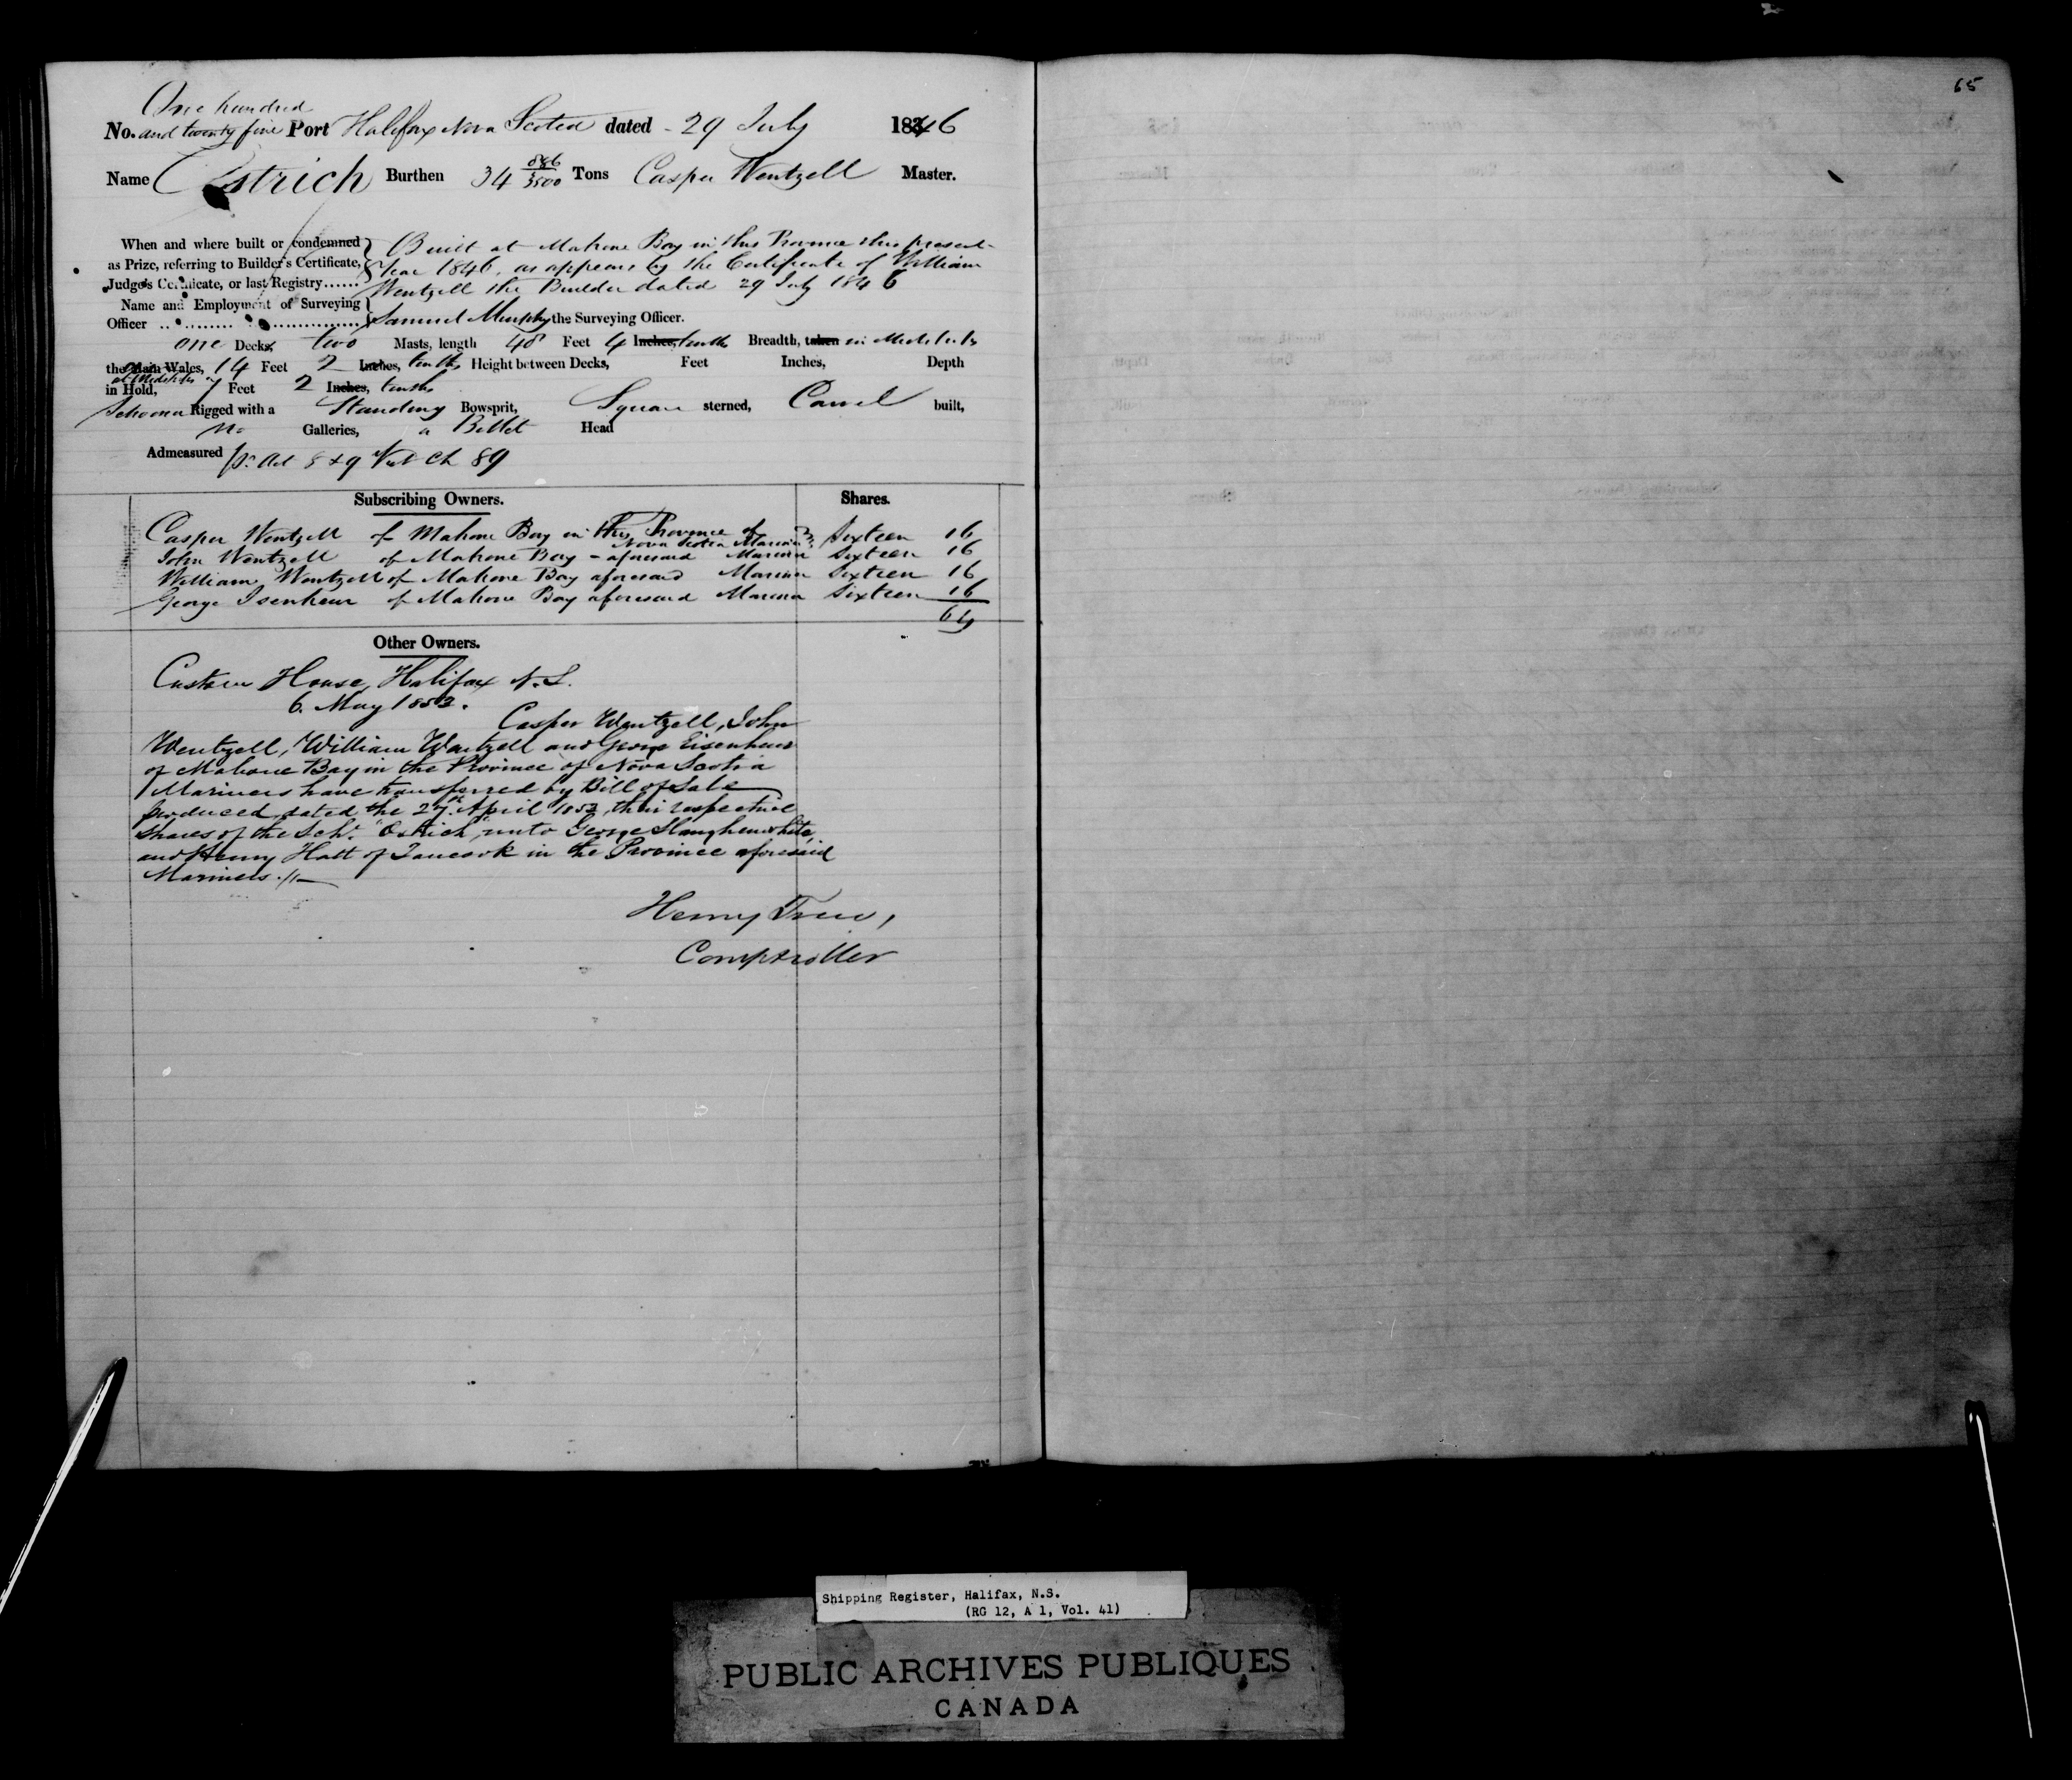 65
One hundred
No. and twenty five Port Halifax Nova Scotia dated - 29 July 1846
Name Ostrich Burthen 34 886/3500 Tons Casper Wentzell Master.
When and where built or condemned Built at Mahone Bay in this Province this present
as Prize, referring to Builder's Certificate, Year 1846, as appears by the Certificate of William
Judge's Certificate, or last Registry...... Wentzell the Builder dated 29 July 1846
Name and Employment of Surveying
Officer .................. Samuel Murphy the Surveying Officer.
one Decks, two Masts, length 48 Feet 4 Inches, tenths Breadth, taken in Midships
the Main Wales, 14 Feet 2 Inches, tenths Height between Decks, Feet Inches, Depth
at Midships
in Hold, 7 Feet 2 Inches, tenths
Schooner Rigged with a Standing Bowsprit, Square sterned, Carvel built,
no Galleries, a Billet Head
Admeasured pr. Act 8 & 9 Vict Ch 89
Subscribing Owners. Shares.
Casper Wentzell of Mahone Bay in this Province of Sixteen 16
Nova Scotia Mariner
John Wentzell of Mahone Bay - aforesaid Mariner Sixteen 16
William Wentzell of Mahone Bay aforesaid Mariner Sixteen 16
George Isenheur of Mahone Bay aforesaid Mariner Sixteen 16
64
Other Owners.
Custom House, Halifax N.S.
6. May 1853.
Casper Wentzell, John
Wentzell, William Wentzell and George Eisenhaur
of Mahone Bay in the Province of Nova Scotia
Mariners have transferred by Bill of Sale
produced dated the 27th April 1853, their respective
shares of the Schr. "Ostrich," unto George Slaughenwhite,
and Henry Hatt of Tancook in the Province aforesaid
Mariners.//—
Henry Trew,
Comptroller
Shipping Register, Halifax, N.S.
(RG 12, A 1, Vol. 41)
PUBLIC ARCHIVES PUBLIQUES
CANADA